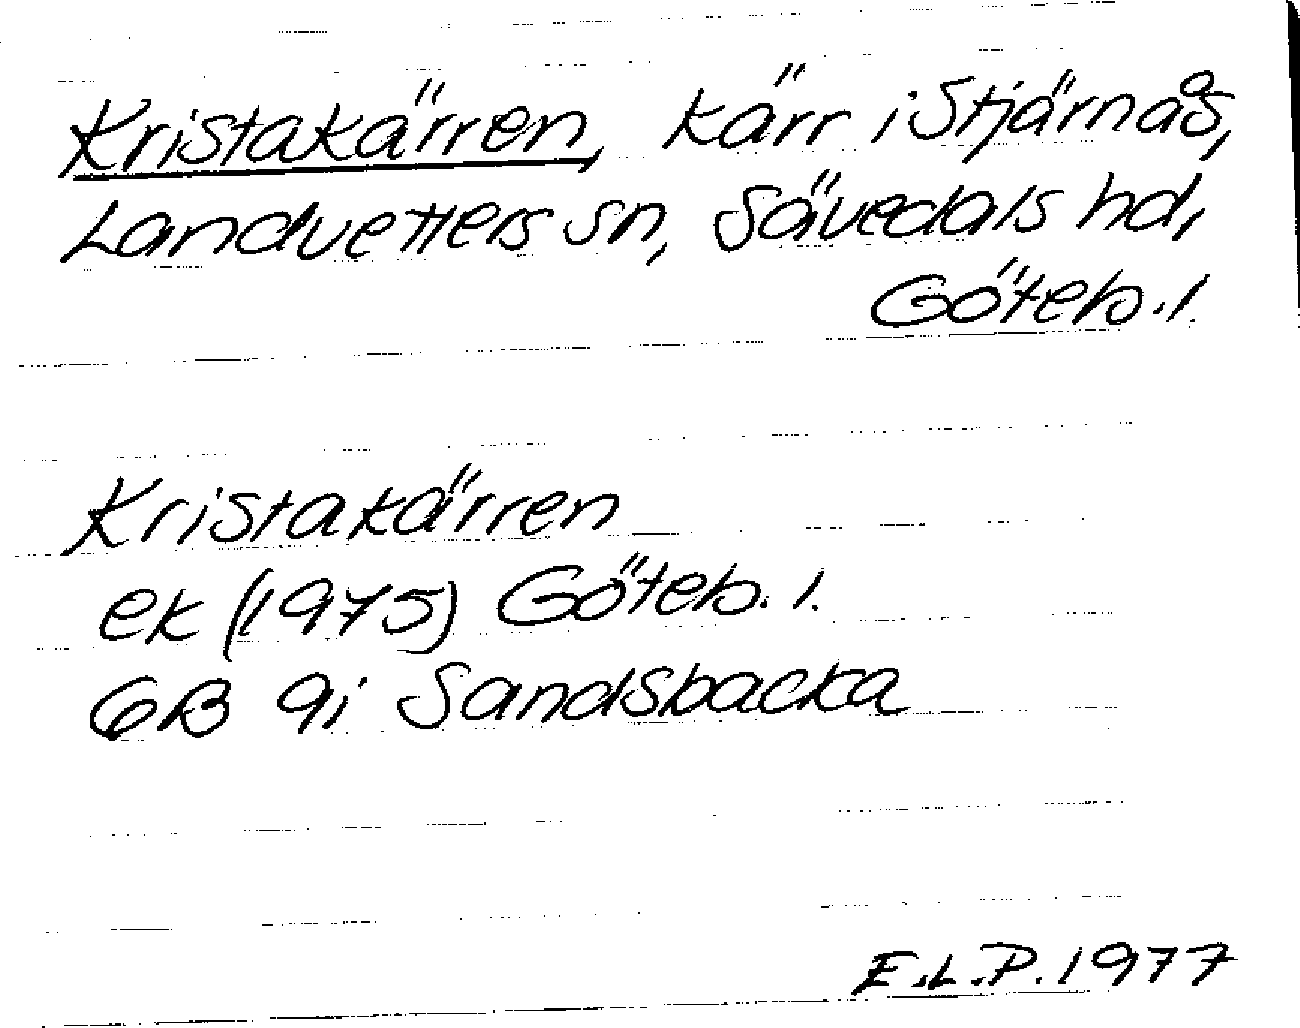 Kristakärren, kärr i Stjärnås,
Landvetters sn, Sävedals hd,
Göteb. l.
Kristakärren
ek (1975) Göteb. l.
6B 9i Sandsbacka
E.L.P. 1977